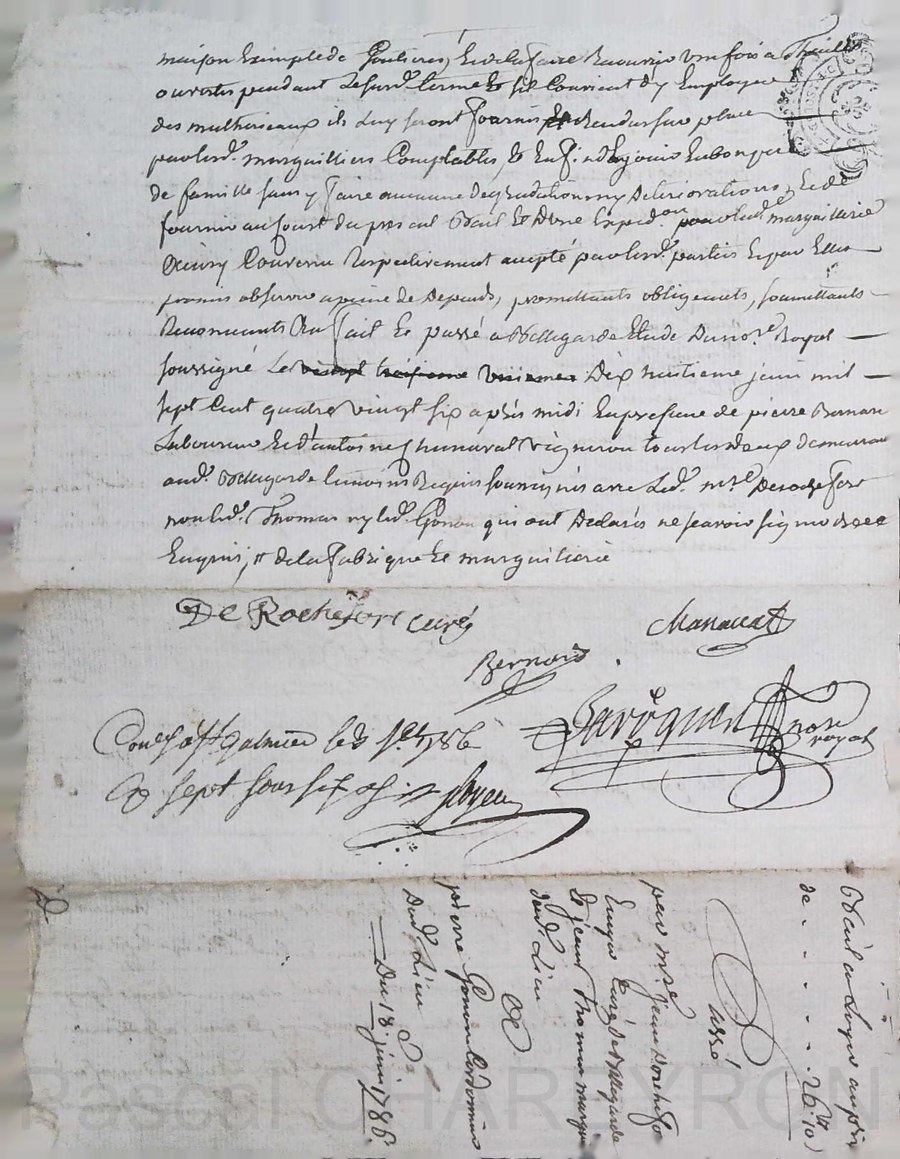 maison Exempte de Goutieres, Et de la faire Recouvrir un fois a Thuilles
ouvertes pendant Lesusd. terme Et sil Convient dy Employer
des mathereaux ils Luy seront fournis Et Rendus sur place
par lesd. marguilliers Comptables, Et Enfin dEn jouir En bon pere
de famille sans y faire aucunne degradations ny deteriorations, Et de
fournir au present Bail Et Dune Expedon. marguillerie
Ainsy Convenu Respectivement accepté par lesd. parties Et par Elles
promis observer a peine de Depends, promettants obligeants, soumettants
Renoncants &c fait Et passé a Bellegarde Etude du nore. Royal
soussigné Le vingt troisieme Dix huitieme juin mil
sept Cent quatre vingt six après midi En presence de pierre Bernard
Laboureur Et dantoine vigneron tous les deux demeurant
aud. Bellegarde temoins Requis soussignés avec Led. mre. De rochefort
non led. Thomas ny led. Gonon qui ont Declarés ne scavoir signer de ce
Enquis, de la fabrique Et marguillerie
De Rochefort curé
Manavat
Bernard
nore royal
Con.lé à St galmier le 1786
sept sous six
Bail a Loyer au prix
de - - - - 26tt 10s
Passé
par mre. jean
Curé de Bellegarde
Et jean Thomas
dud. Lieu
A
pierre Gonon Cordonnier
Dud. Lieu
Du 18. juin 1786.
Pascal CHAREYRON